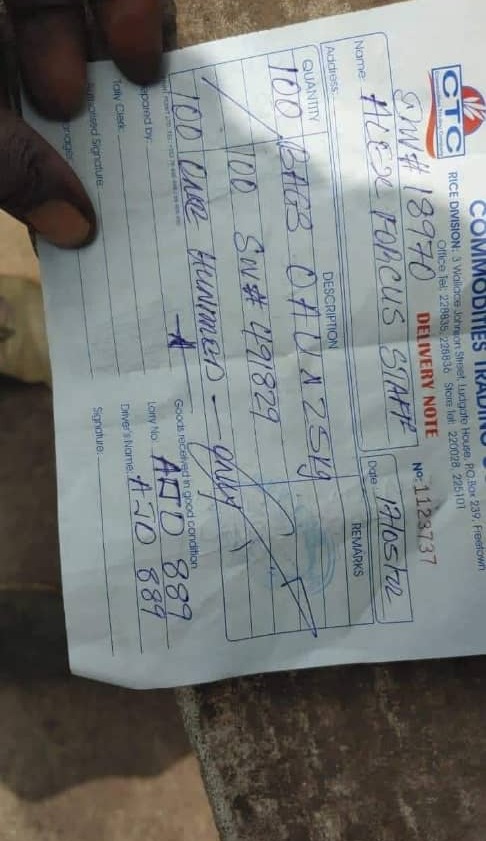 CTC
COMMODITIES TRADING CO
RICE DIVISION: 3 Wallace Johnson Street, Ludgate House, P.O.Box 239, Freetown
Office Tel: 228835, 228836 Store Tel: 220028, 225101
DW# 18970 DELIVERY NOTE Nº: 1123737
Name: ALEX FORCUS STAFF Date: 12/05/22
Address:
QUANTITY DESCRIPTION REMARKS
100 BAGS 25kg
100 SW# 491829
100 ONE HUNDRED - only
Goods received in good condition
epared by: Lorry No: AJO 889
Tally Clerk: Driver's Name: AJO 889
Authorised Signature: Signature:
anager: